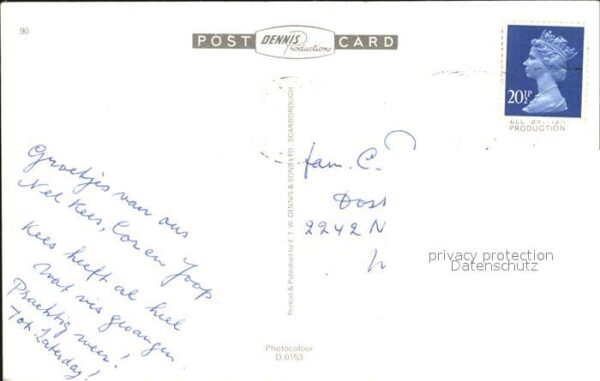 90
POST DENNIS Productions CARD
20½P
ALL BRITISH
PRODUCTION
Groetjes van ons
Nel Kees, Cor en Joop
Kees heeft al heel
wat vis gevangen.
Prachtig weer!
Tot Zaterdag!
fam. C.
Dost
2242 N
Printed & Published by E. T. W. DENNIS & SONS LTD SCARBOROUGH
privacy protection
Datenschutz
Photocolour
D.0153